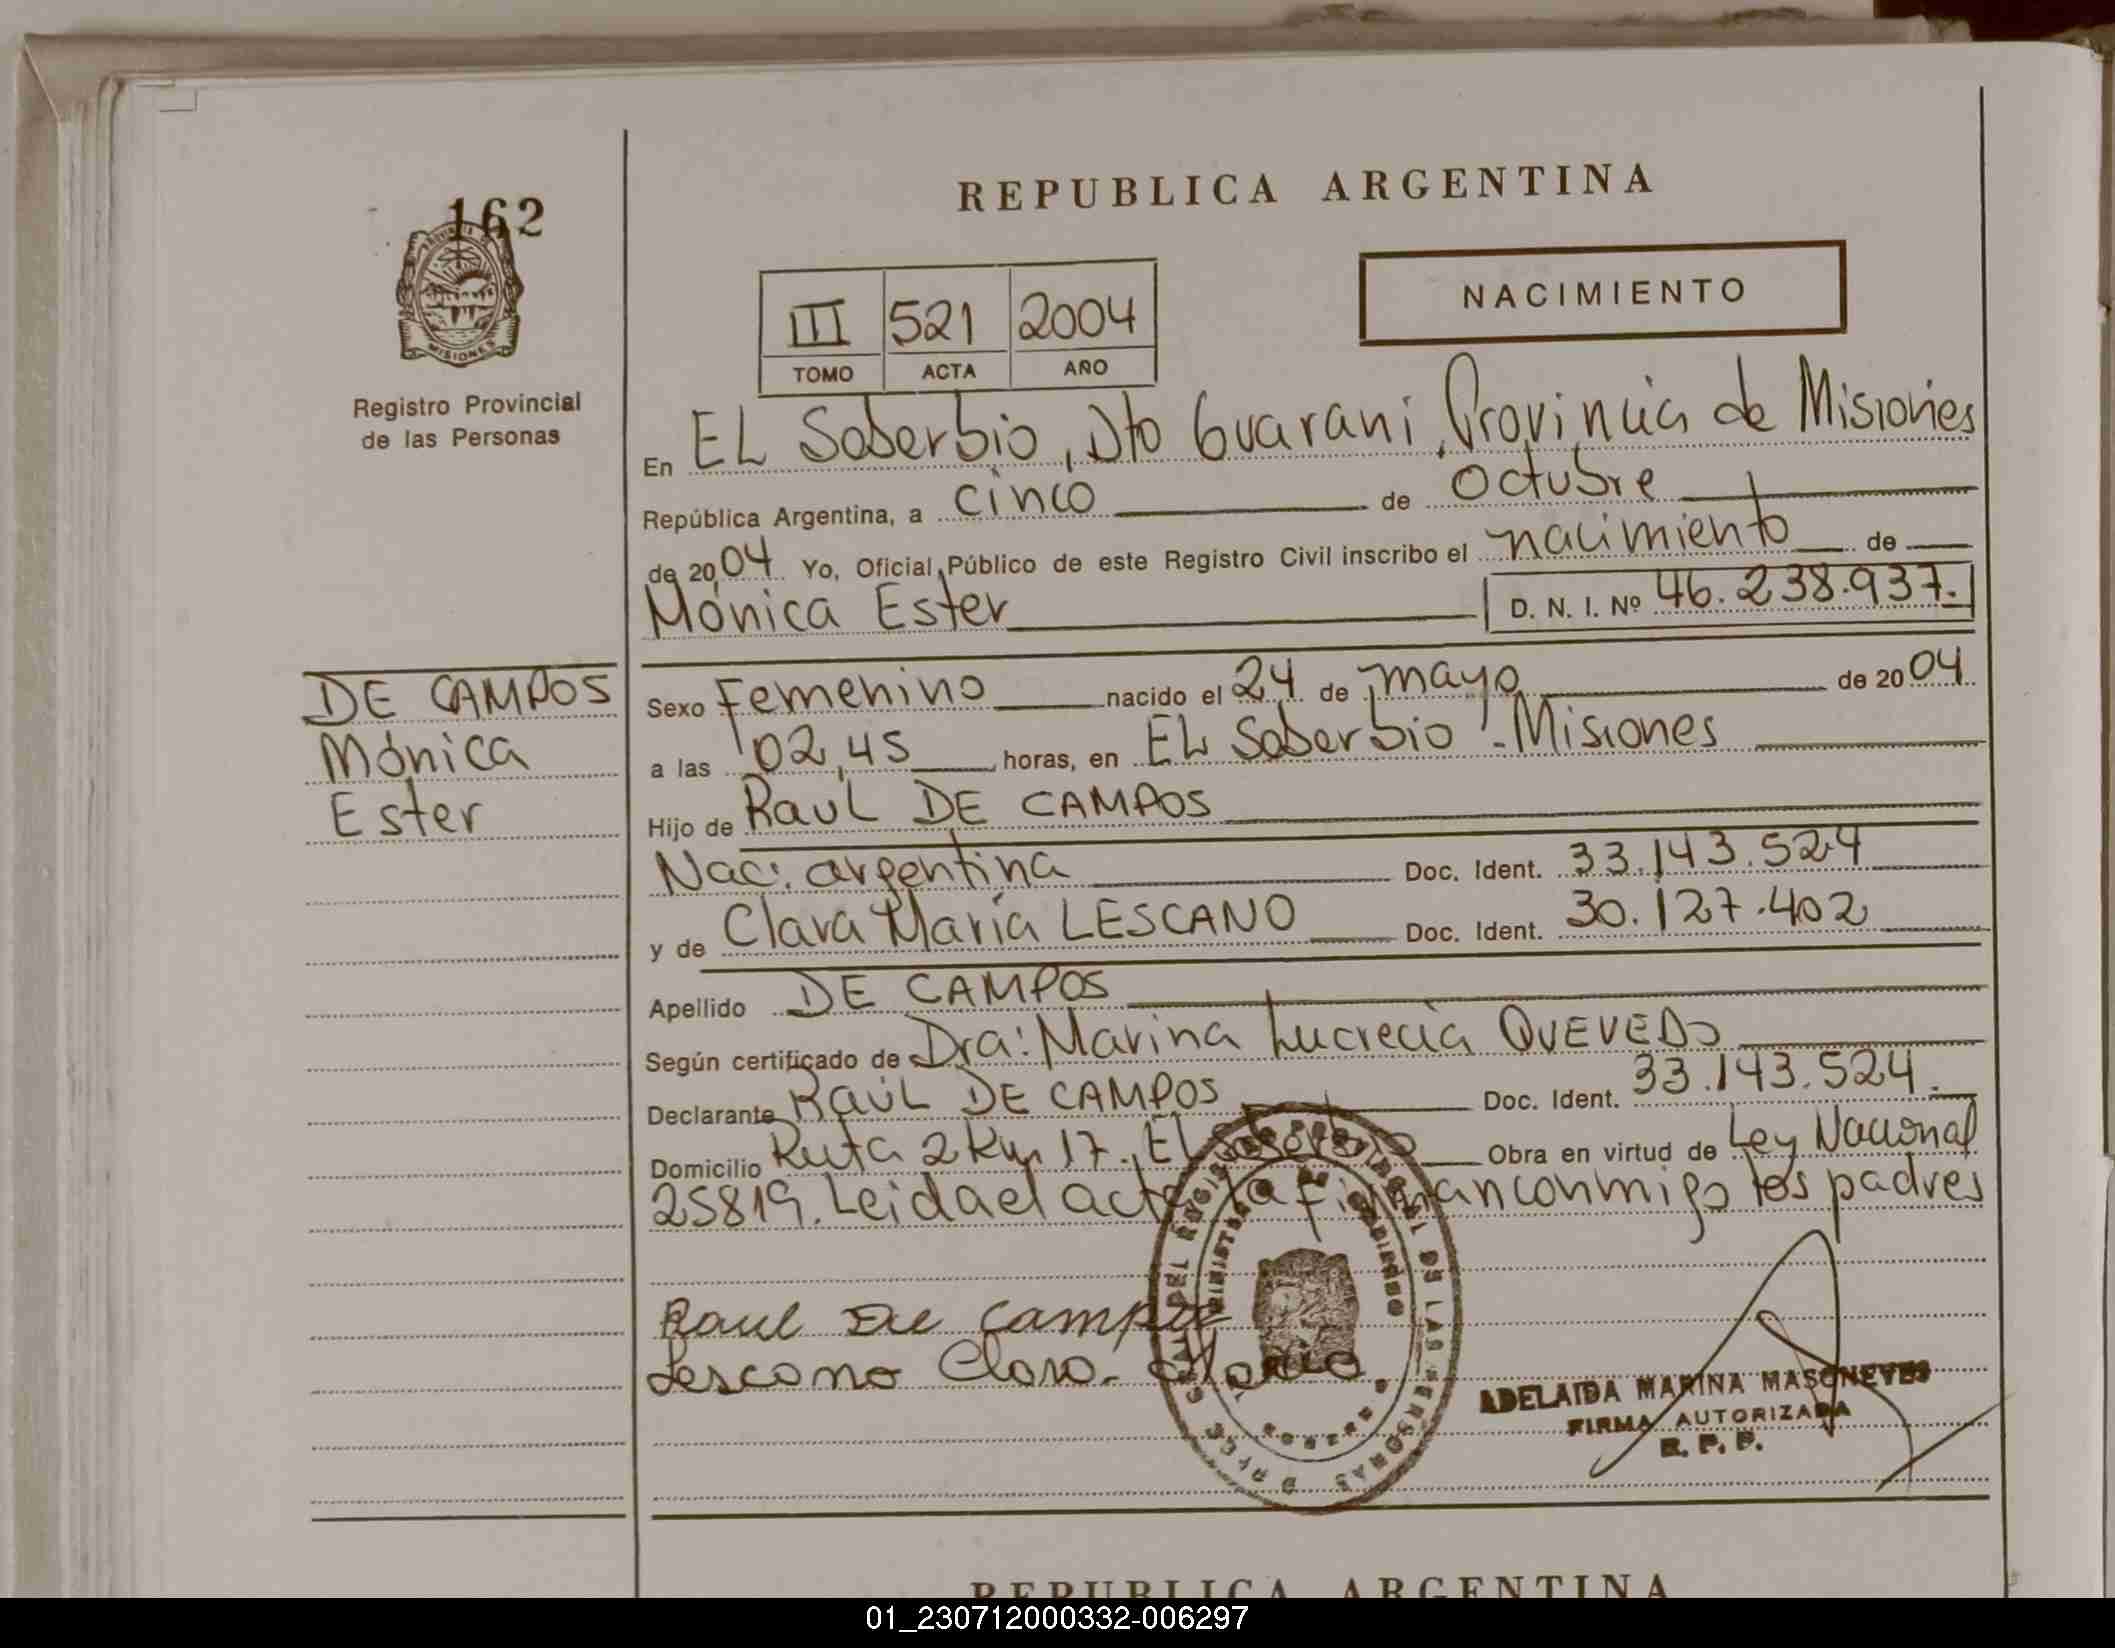 162
MISIONES
Registro Provincial
de las Personas
REPUBLICA ARGENTINA
III 521 2004
TOMO ACTA AÑO
NACIMIENTO
En EL Soberbio, Dto Guaraní, Provincia de Misiones
República Argentina, a cinco de octubre
de 2004 Yo, Oficial Público de este Registro Civil inscribo el nacimiento de
Mónica Ester D. N. I. Nº 46.238.937.
DE CAMPOS
Mónica
Ester
Sexo Femenino nacido el 24 de mayo de 2004
a las 02,45 horas, en EL Soberbio - Misiones
Hijo de Raul DE CAMPOS
Nac: argentina Doc. Ident. 33.143.524
y de Clara María LESCANO Doc. Ident. 30.127.402
Apellido DE CAMPOS
Según certificado de Dra: Marina Lucrecia QUEVEDO
Declarante RAÚL DE CAMPOS Doc. Ident. 33.143.524.
Domicilio Ruta 2 Km 17. El Soberbio Obra en virtud de Ley Nacional
25819. Leida el acta la firman conmigo los padres
Raul De Campos
Lescano Clara Maria
ADELAIDA MARINA MASCNEVES
FIRMA AUTORIZADA
R. P. P.
REPUBLICA ARGENTINA
01_230712000332-006297